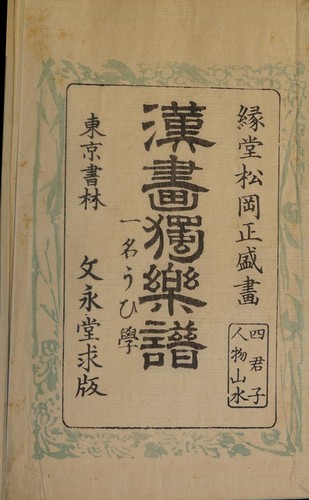 緑堂松岡正盛畫
四君子
人物山水
漢畫獨樂譜
一名うひ學
東京書林 文永堂求版